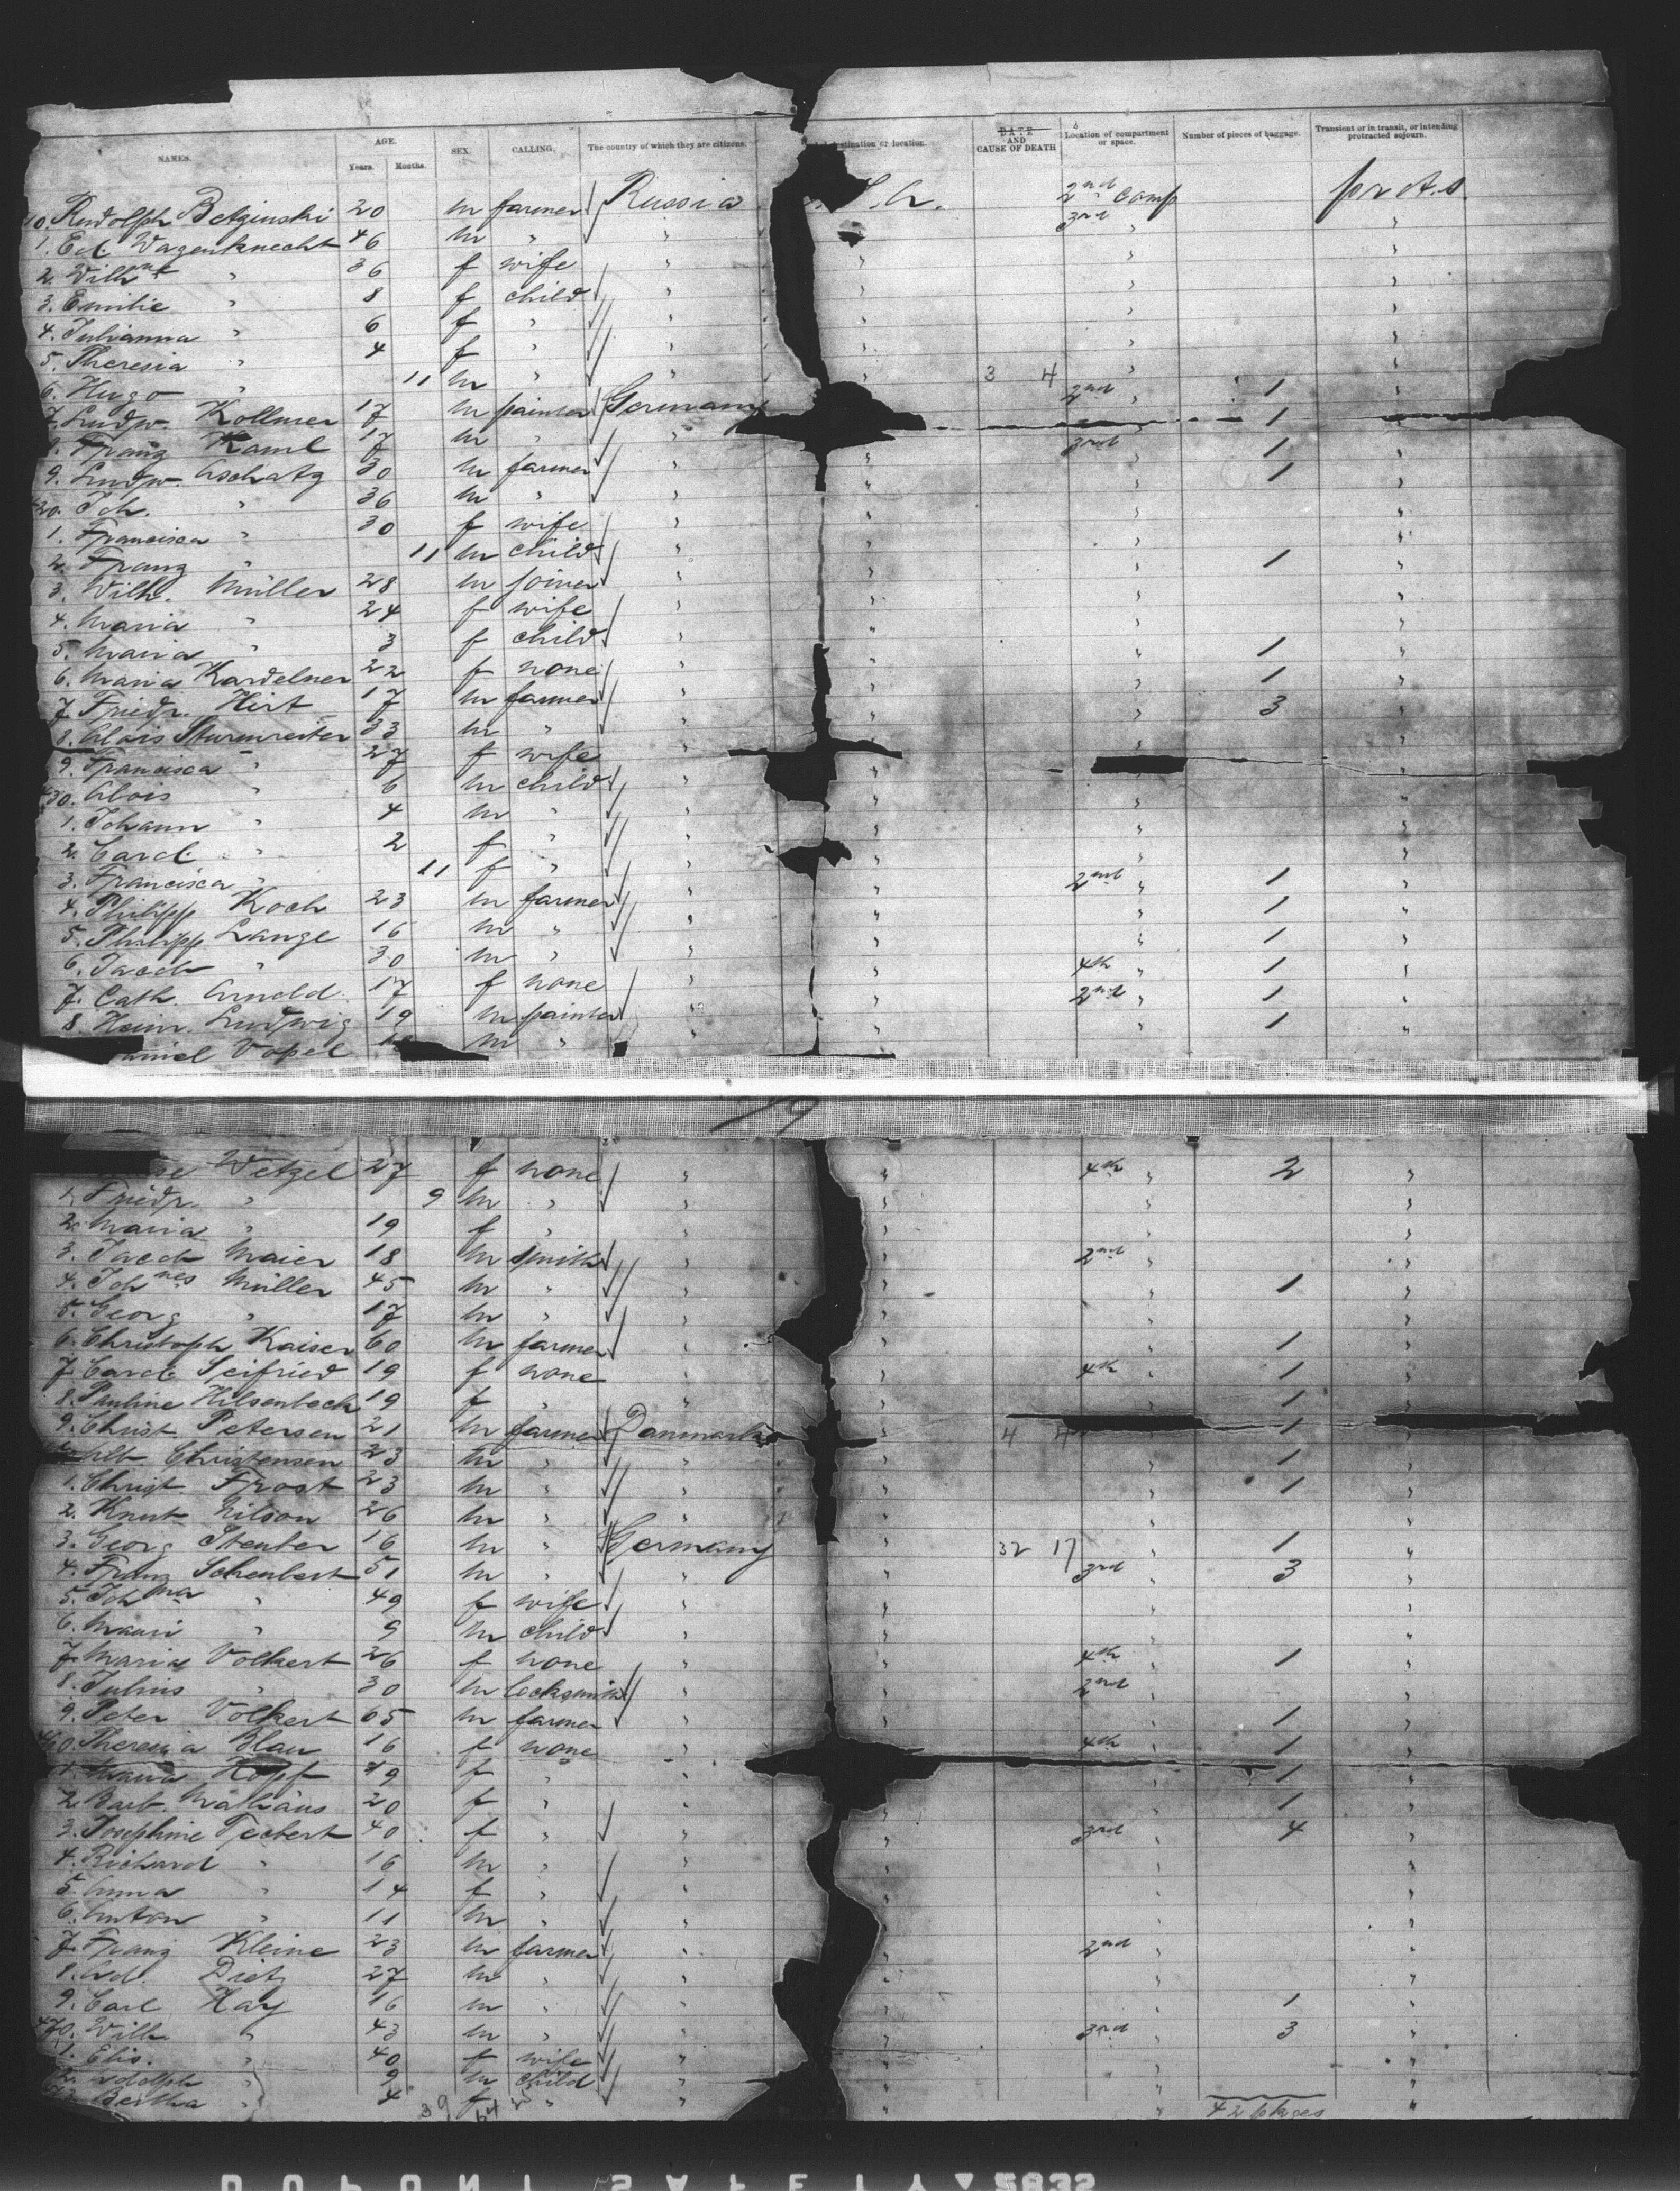 NAMES. AGE. Years. Months. SEX. CALLING. The country of which they are citizens. destination or location. DATE AND CAUSE OF DEATH Location of compartment or space. Number of pieces of baggage. Transient or in transit, or intending protracted sojourn.
10. Rudolph 20 m farmer Russia 2nd Comp
1. Ed. Wagenknecht 46 m " 3rd "
2. Wilhne " 36 f wife " "
3. Emilie " 8 f child " "
4. Julianna " 6 f " " "
5. Theresia " 4 f " " "
6. Hugo " 11 m " " 3 4 "
7. Ludw. Kollmer 17 m painter Germany 2nd " 1 "
8. Franz Kaml 17 m " " " 1
9. Ludw. Aschatz 30 m farmer " 3rd " 1 "
420. Joh. " 36 m " " 1 "
1. Francisca " 30 f wife " " "
2. Franz " 11 m child " " "
3. Wilh. Müller 28 m joiner " " 1 "
4. Maria " 24 f wife " " "
5. Maria " 3 f child " " "
6. Maria Kardelner 22 f none " " 1 "
7. Friedr. Hirt 17 m farmer " " 1 "
8. Alois Sturmreiter 33 m " " 3 "
9. Francisca " 27 f wife " "
430. Alois " 6 m child " "
1. Johann " 4 m " " " "
2. Carol. " 2 f " " " "
3. Francisca " 11 f " " " "
4. Philipp Koch 23 m farmer " 2nd " 1 "
5. Philipp Lange 16 m " " " 1 "
6. Jacob " 30 m " " " 1 "
7. Cath. Arnold 17 f none " 4th " 1 "
8. Heinr. Ludwig 19 m painter " 2nd " 1 "
Vopel m " " " 1 "
79
Wetzel 27 f none " 4th " 2 "
1. Friedr. " 9 m " " " "
2. Maria " 19 f " " "
3. Jacob Maier 18 m smith " 2nd " "
4. Johnes Müller 45 m " " " 1 "
5. Georg " 17 m " " " "
6. Christoph Kaiser 60 m farmer " " 1 "
7. Carol. Seifried 19 f none " 4th " 1 "
8. Pauline Hilsenbeck 19 f " " " 1
9. Christ. Petersen 21 m farmer Danmark 4 4 1
Alb. Christensen 23 m " " " 1 "
1. Christ. Frost 23 m " " " 1 "
2. Knut Nilson 26 m " " " "
3. Georg Steuber 16 m " Germany 32 17 " 1 "
4. Franz Schenbert 51 m " " 3rd " 3 "
5. Johna " 49 f wife " " "
6. " 9 m child " " "
7. Maria Volkert 26 f none " 4th " 1 "
8. Julius " 30 m locksmith " 2nd "
9. Peter Volkert 65 m farmer " " 1 "
460. Theresia Blau 16 f none " 4th " 1 "
1. Maria Hopf 19 f " " " 1 "
2. Barb. Mathäus 20 f " " " 1 "
3. Josephine 40 f " " 3rd " 4 "
4. Richard " 16 m " " " "
5. Anna " 14 f " " " "
6. Anton " 11 m " " " "
7. Franz Kleine 23 m farmer " 2nd " "
8. Ad. Dietz 27 m " " " "
9. Carl Hay 16 m " " " 1 "
470. Wilh. " 43 m " " 3rd " 3 "
1. Elis. " 40 f wife " " "
2. " 9 m child " " "
3. Bertha " 4 f " " " "
39 64 42